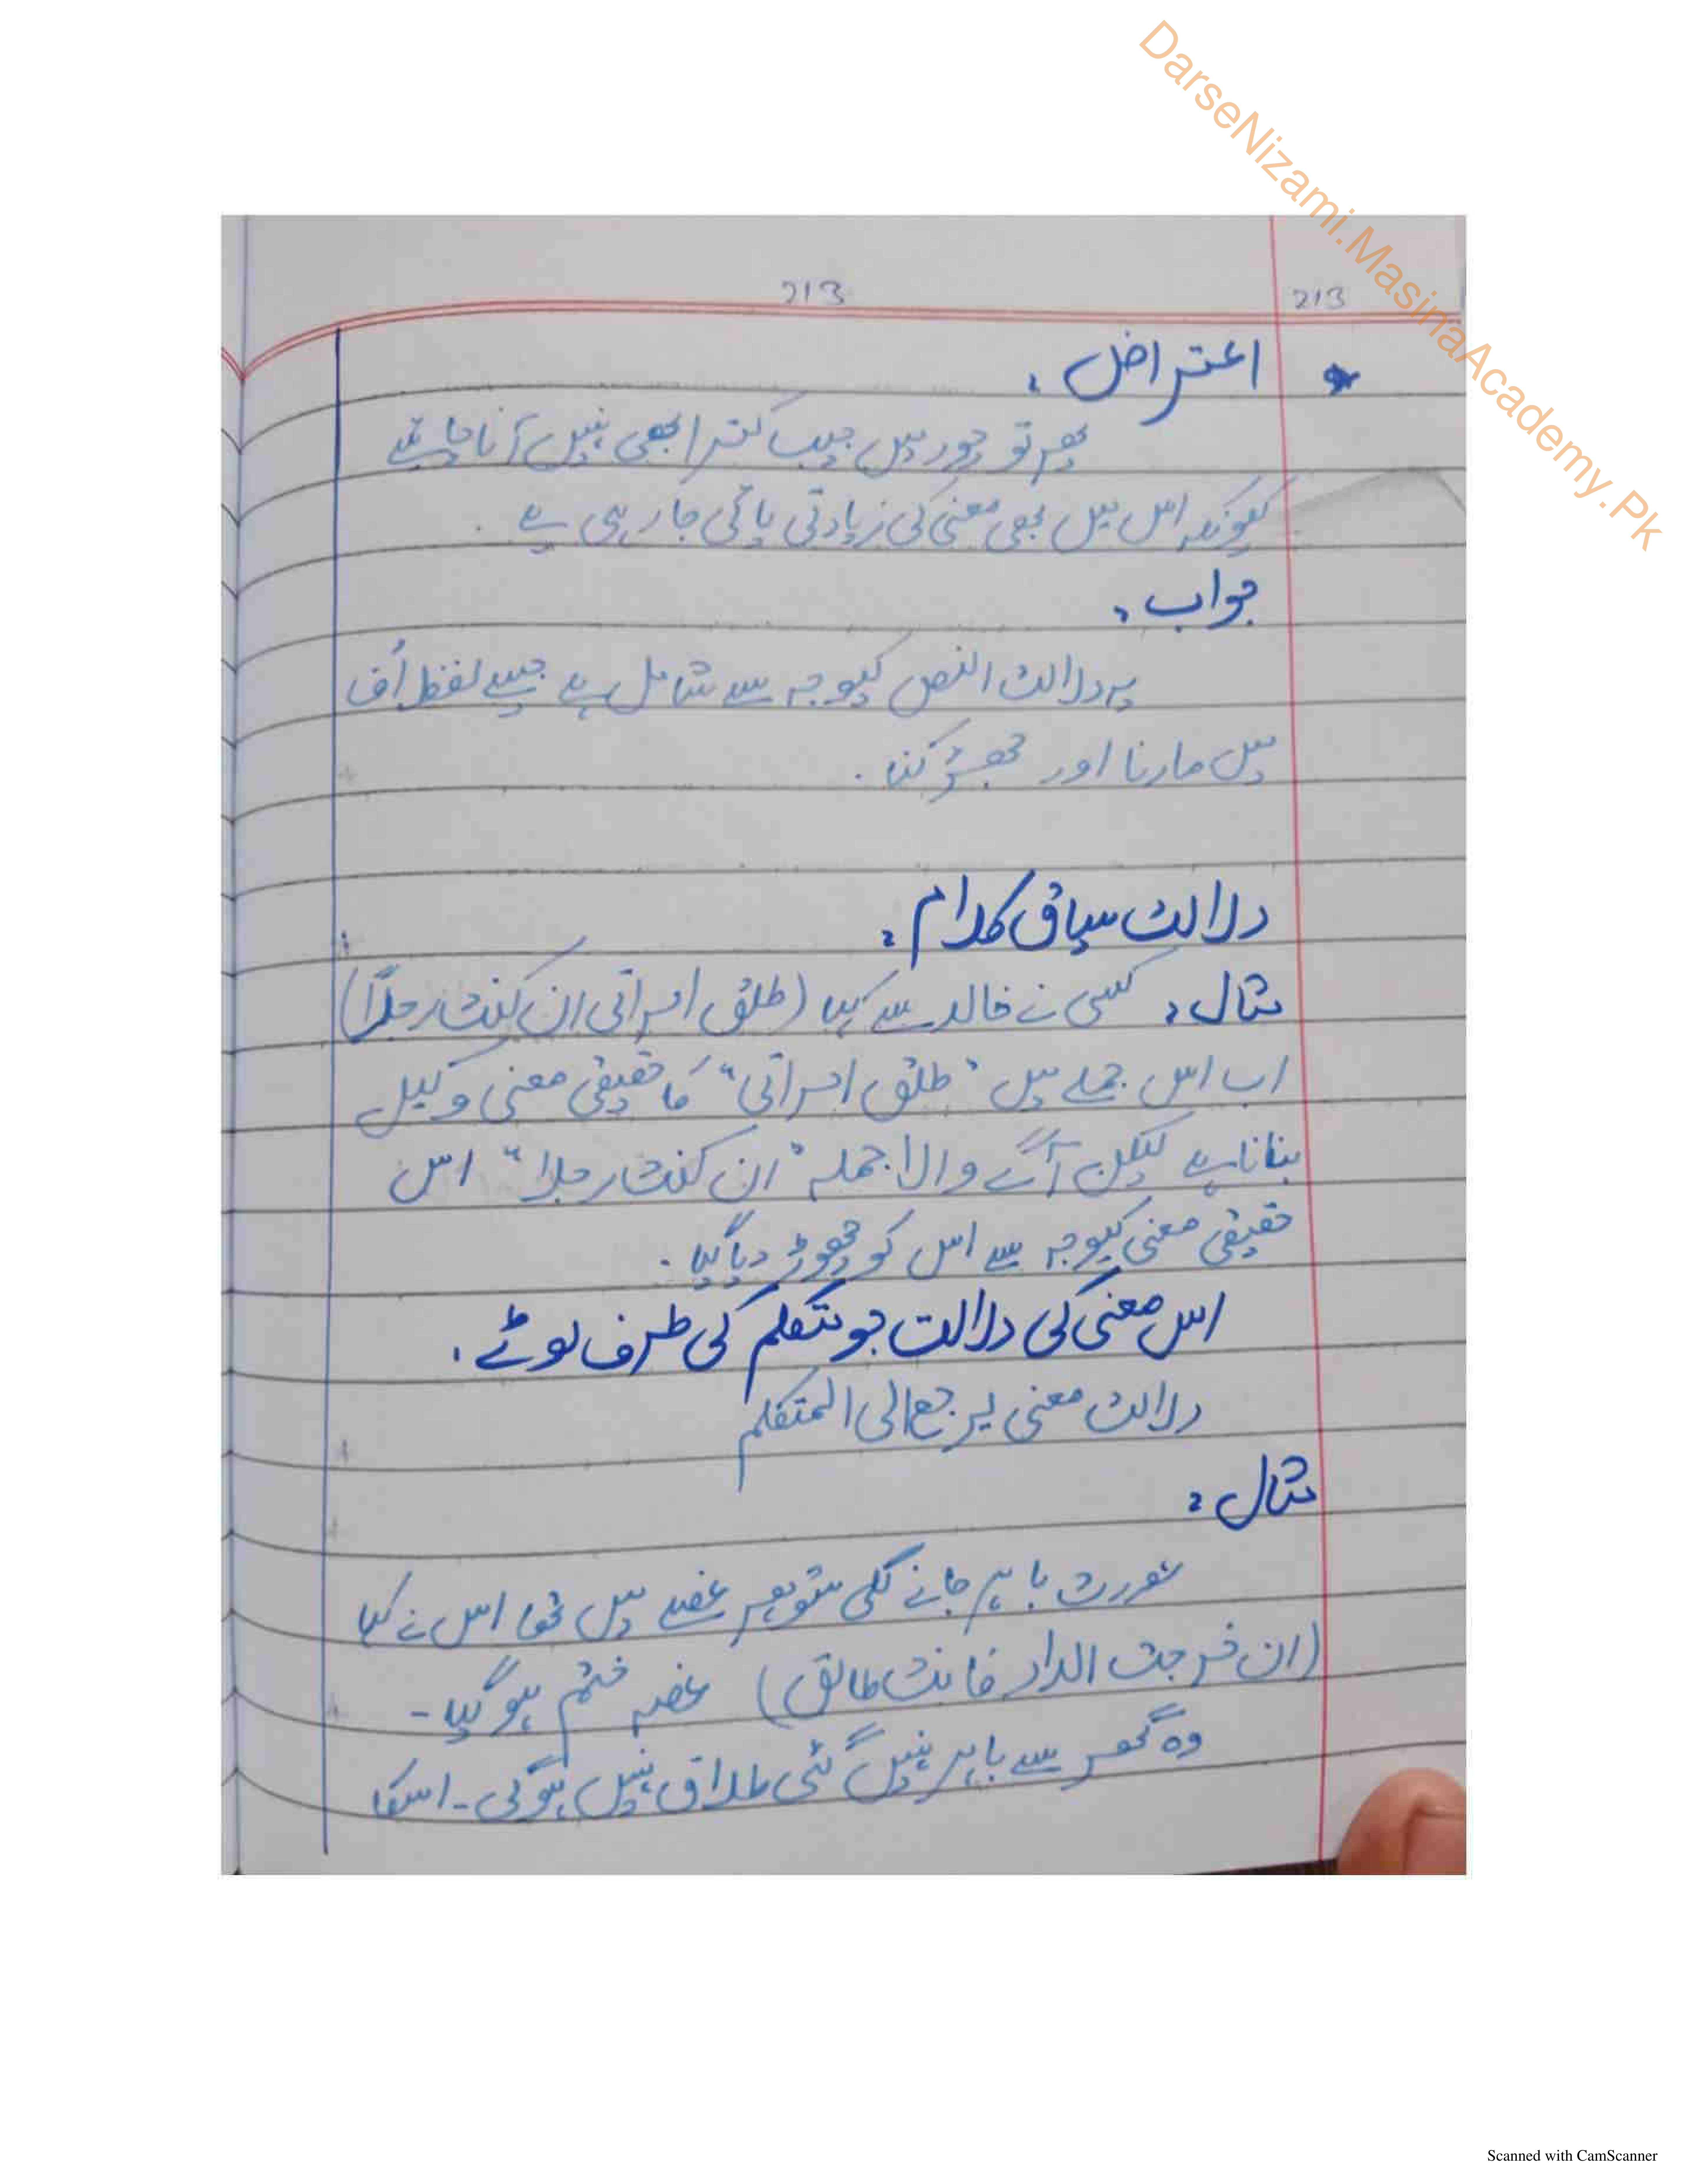 DarseNizami.MasinaAcademy.Pk
213
213
اعتراض :
پھر تو چور میں جیب کترا بھی نہیں آنا چاہئے
کیونکہ اس میں بھی معنی کی زیادتی پائی جا رہی ہے ۔
جواب :
یہ دلالت النص کیوجہ سے شامل ہے جیسے لفظ اُف
میں مارنا اور جھڑکنا ۔
دلالت سیاق کلام :
مثال : کسی نے خالد سے کہا (طلق امراتی ان کنت رجلاً)
اب اس جملے میں "طلق امراتی" کا حقیقی معنی وکیل
بنانا ہے لیکن آگے والا جملہ "ان کنت رجلا" اس
حقیقی معنی کیوجہ سے اس کو چھوڑ دیا گیا ۔
اس معنی کی دلالت جو متکلم کی طرف لوٹے :
دلالت معنی یرجع الی المتکلم
مثال :
عورت باہر جانے لگی شوہر غصے میں تھا اس نے کہا
(ان خرجت الدار فانت طالق) غصہ ختم ہو گیا ۔
وہ گھر سے باہر نہیں گئی طلاق نہیں ہوگی ۔ اسکا
Scanned with CamScanner